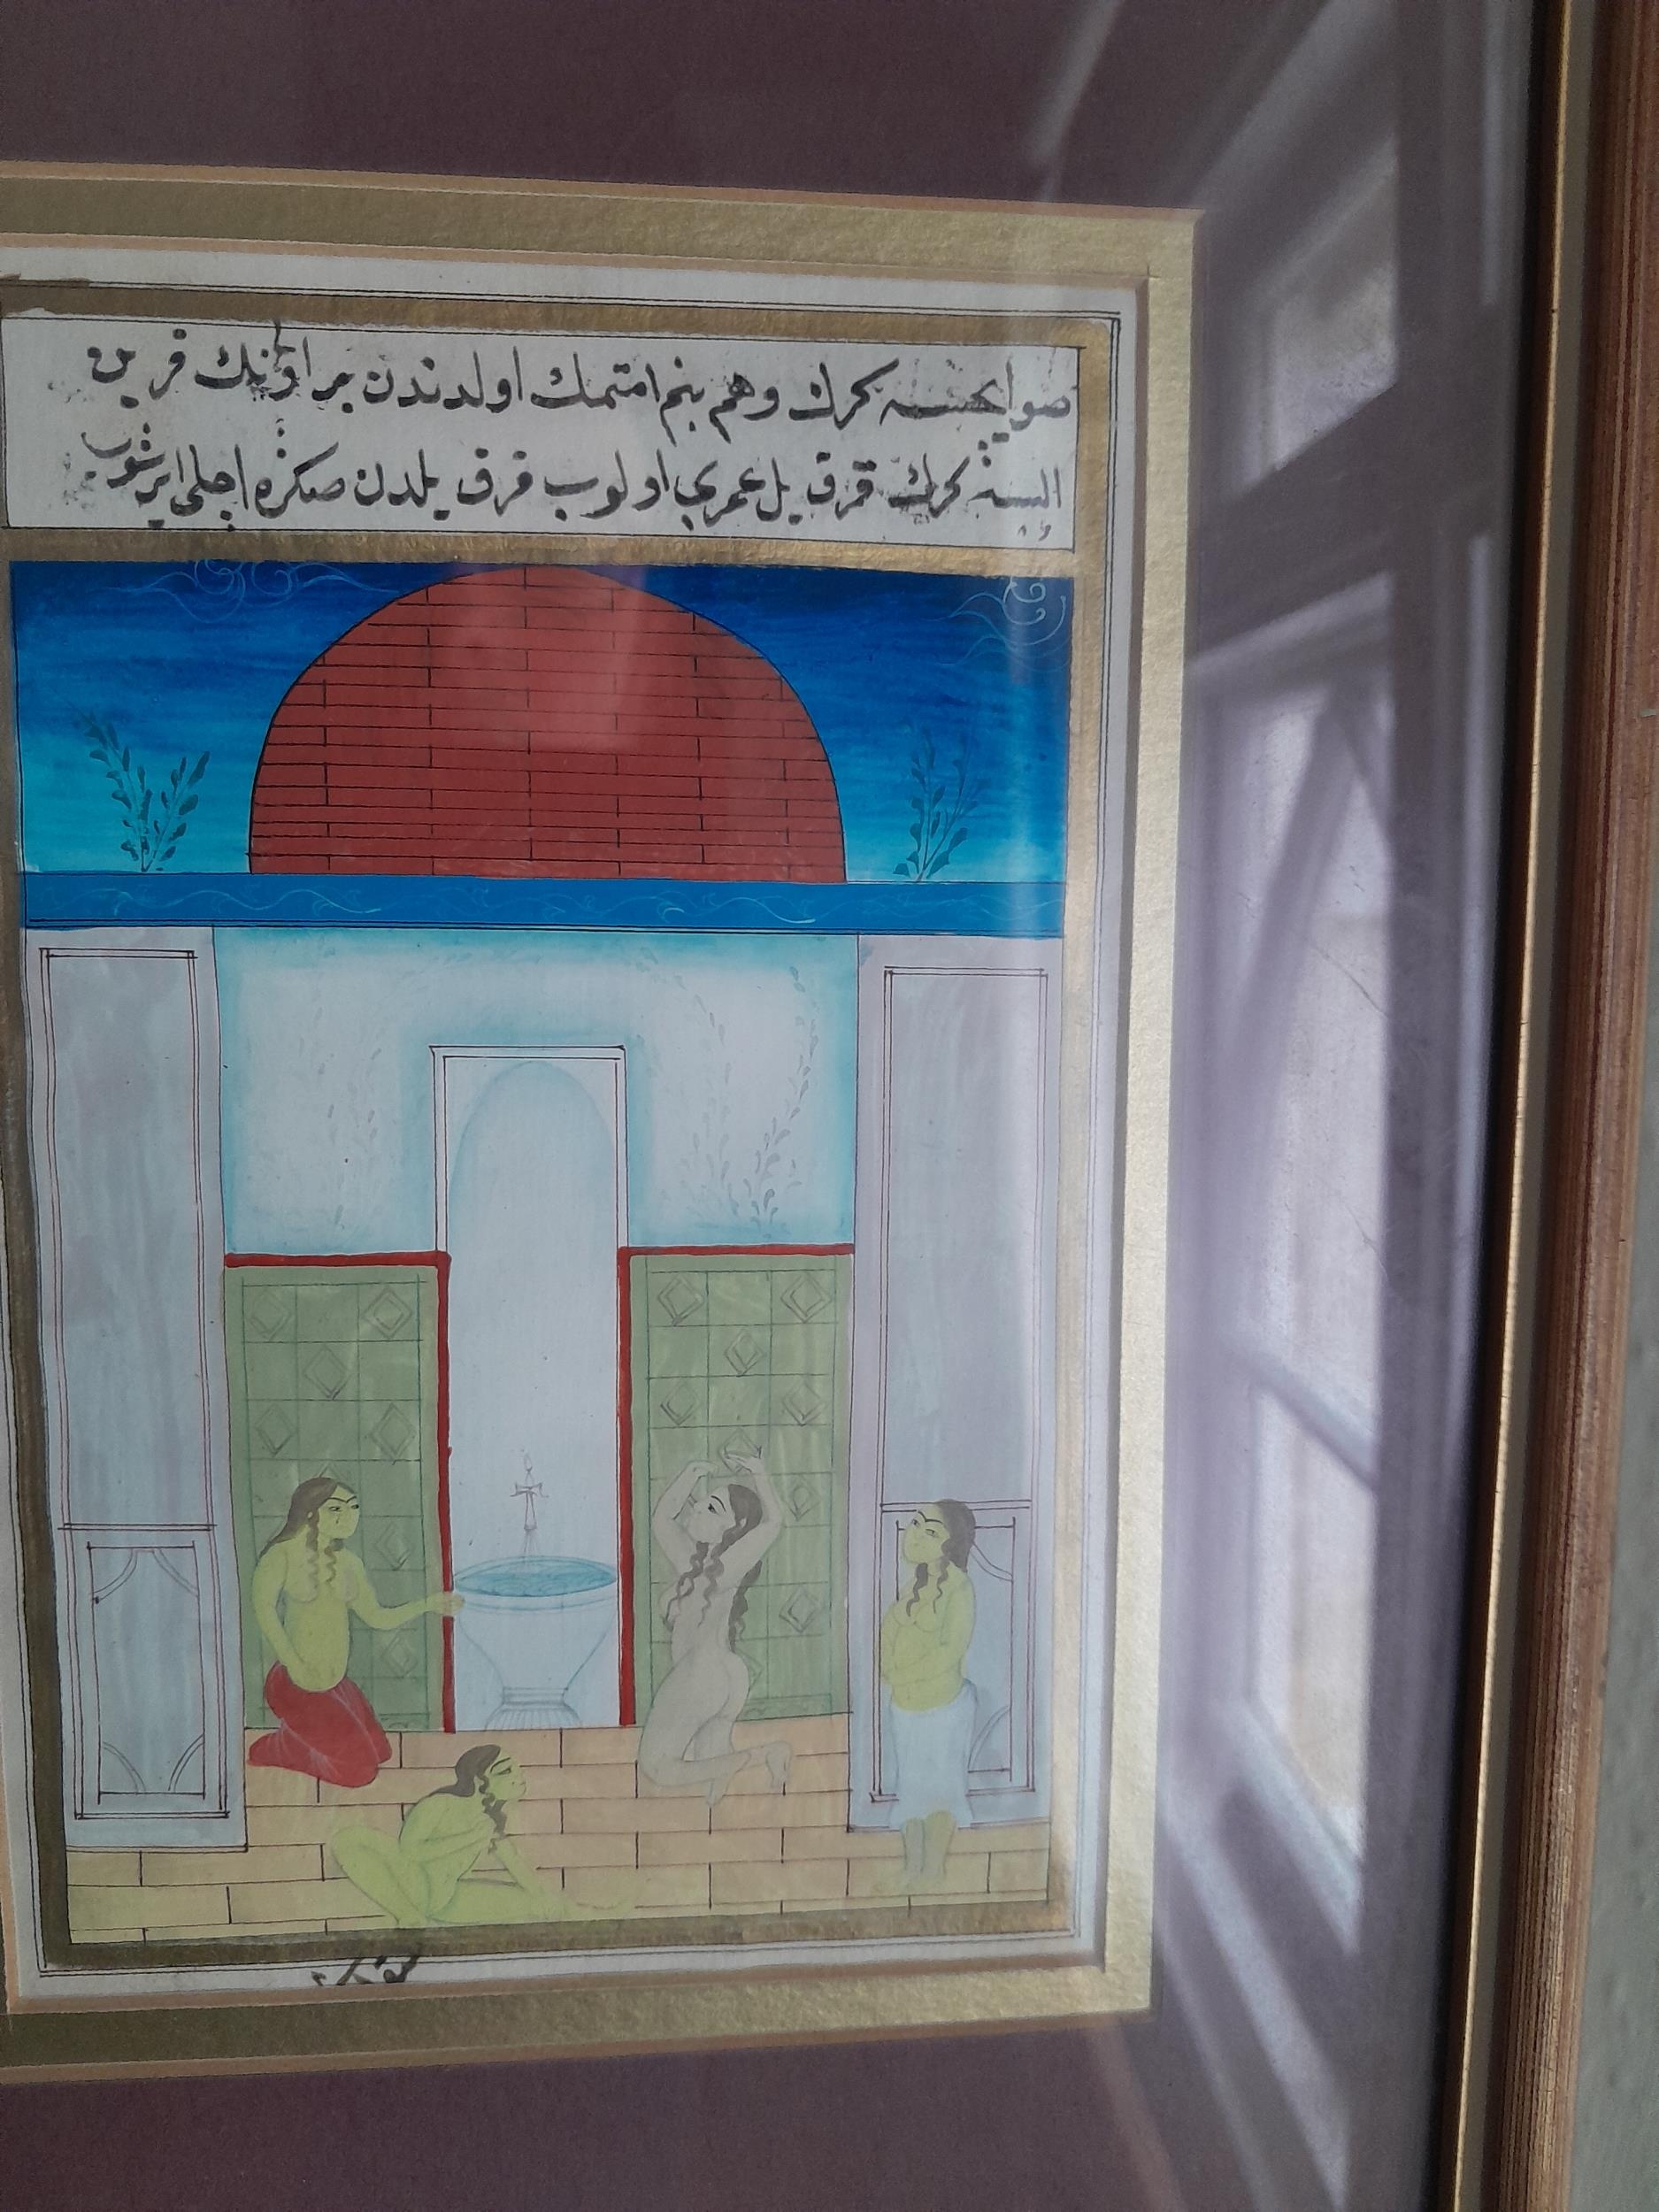 صوايچسه كرك وهم بنم امتمك اولدندن بر اونك قرين
البسه كرك قرق يل عمري اولوب قرق يلدن صكره اجلي ايرشوب